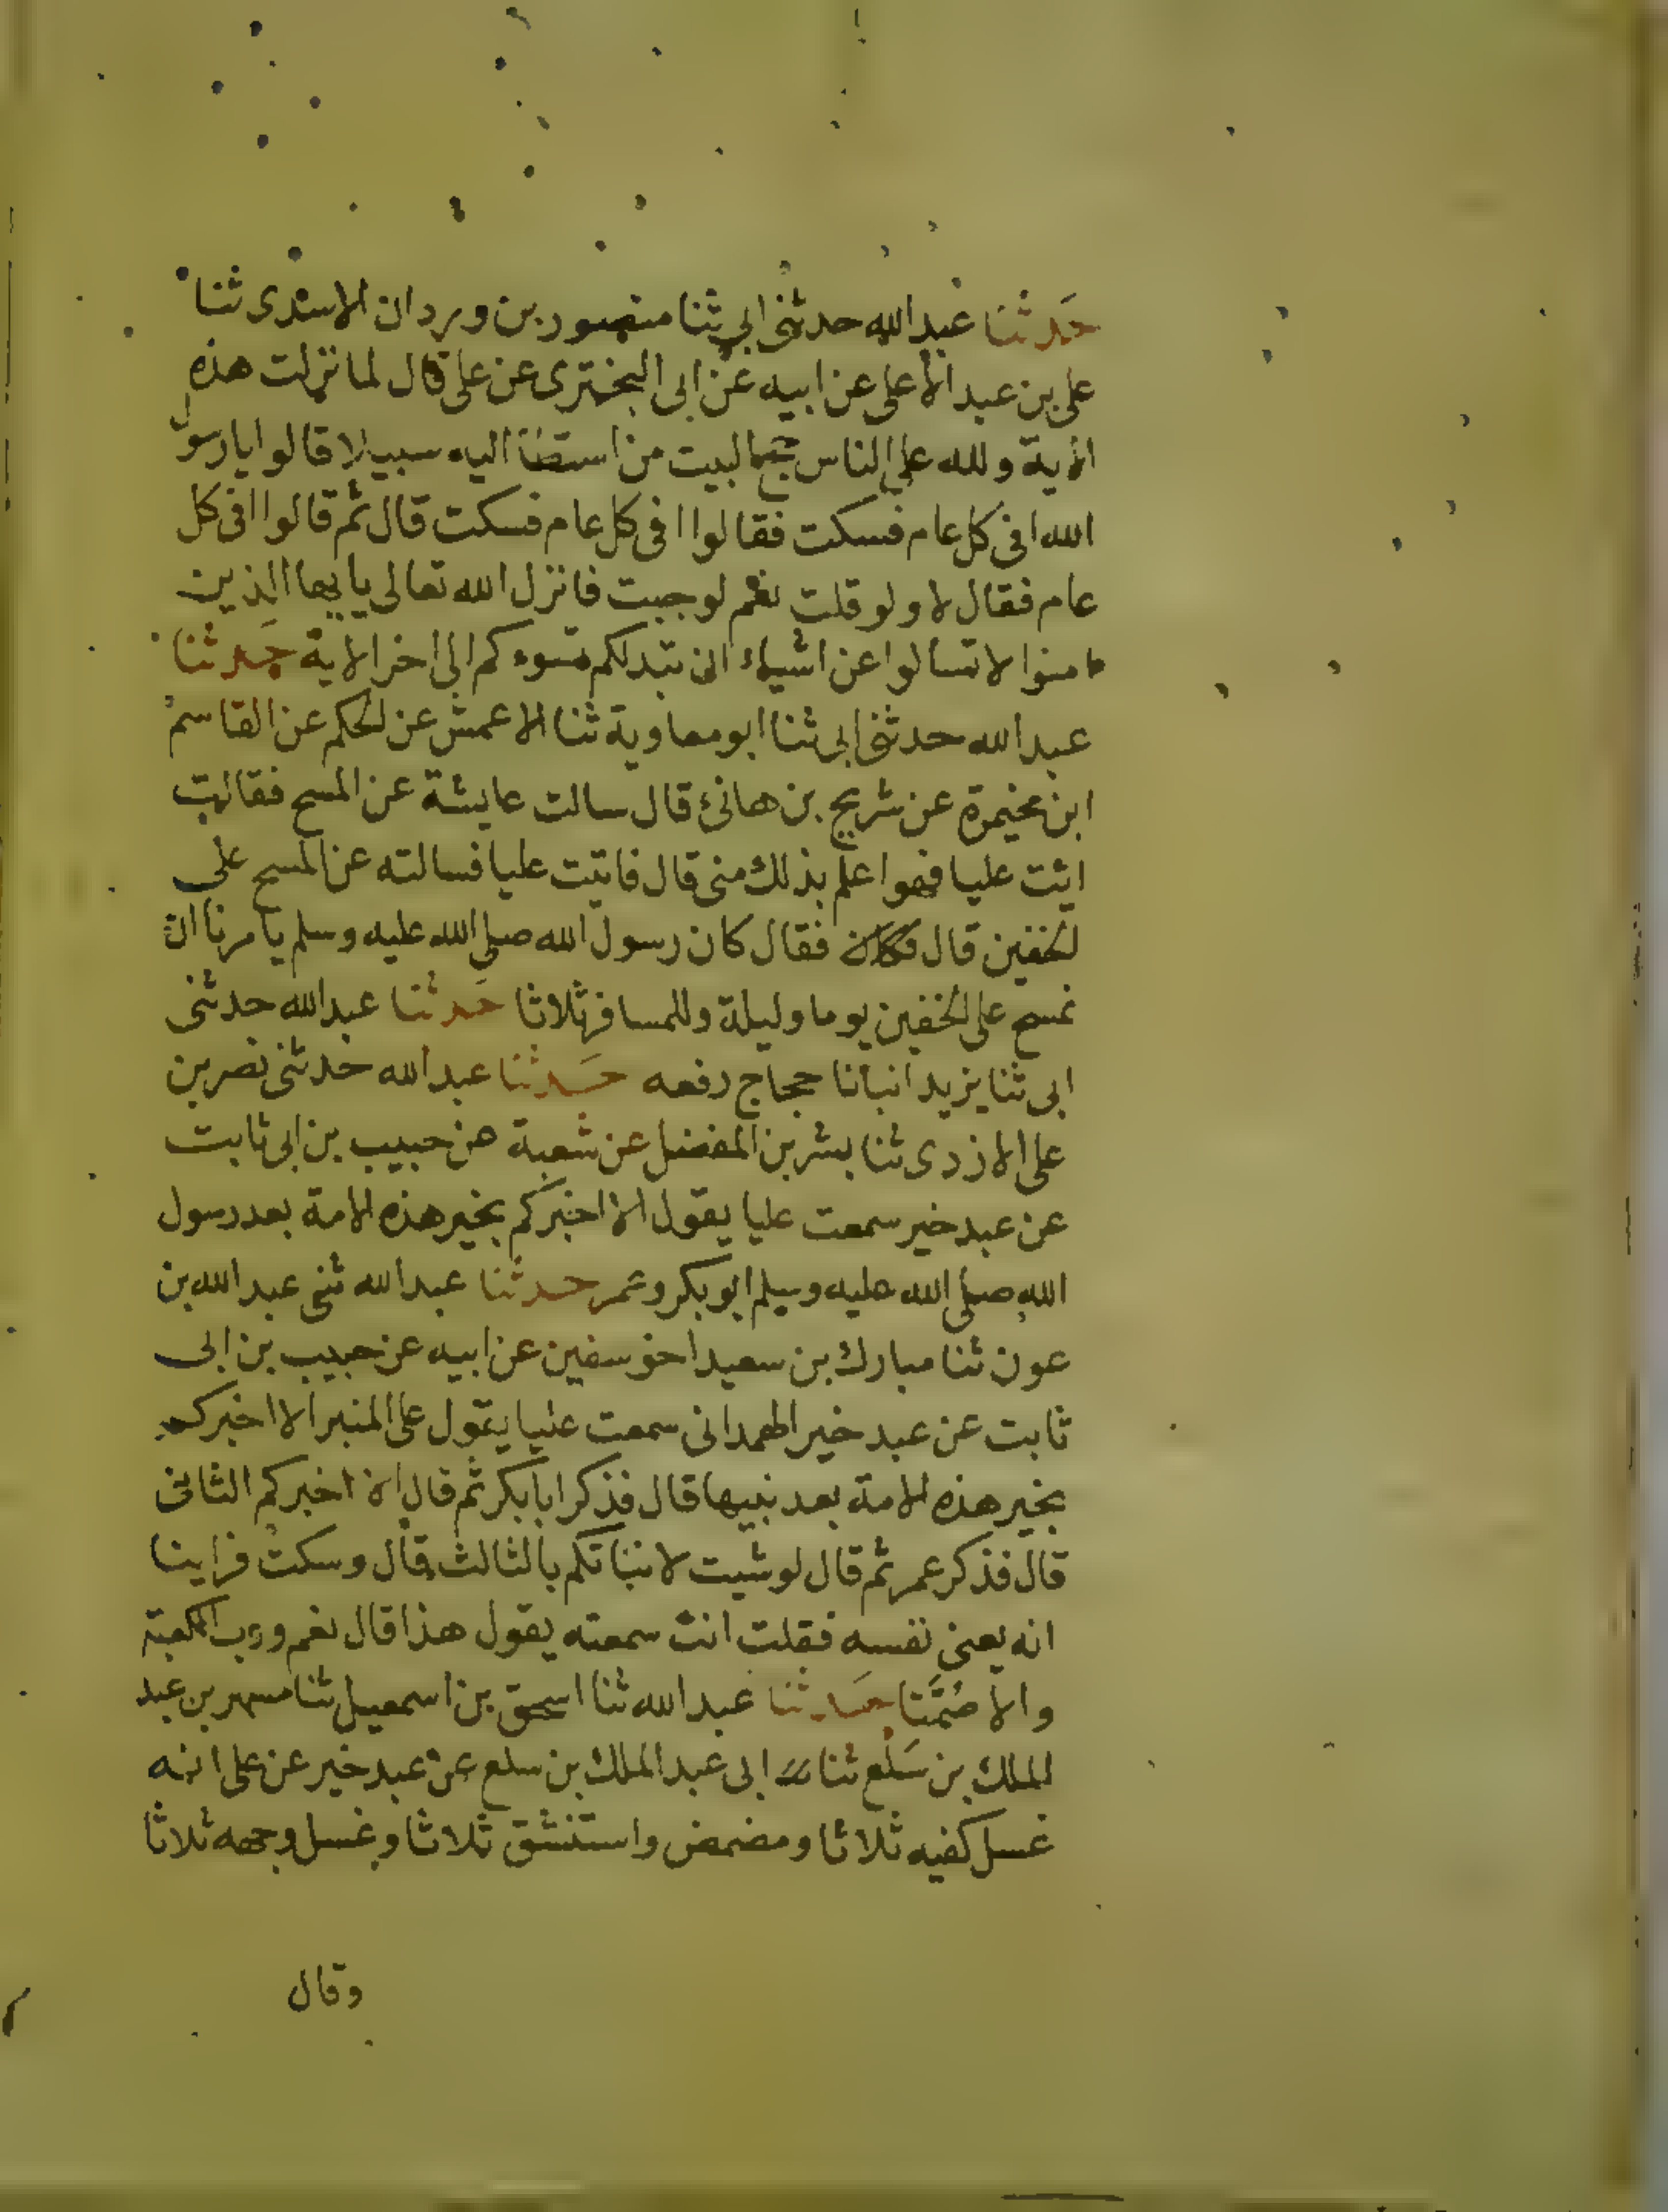 حدثنا عبد الله حدثنى ابى ثنا منصور بن وردان الاسدى ثنا
على بن عبد الاعلى عن ابيه عن ابى البخترى عن على قال لما نزلت هذه
الاية ولله على الناس حج البيت من استطاع اليه سبيلا قالوا يا رسول
الله افى كل عام فسكت فقالوا افى كل عام فسكت قال ثم قالوا افى كل
عام فقال لا ولو قلت نعم لوجبت فانزل الله تعالى يايها الذين
امنوا لا تسالوا عن اشياء ان تبدلكم تسوءكم الى اخر الاية حدثنا
عبد الله حدثنى ابى ثنا ابو معاوية ثنا الاعمش عن الحكم عن القاسم
ابن مخيمرة عن شريح بن هانئ قال سالت عايشة عن المسح فقالت
ائت عليا فهو اعلم بذلك منى قال فاتيت عليا فسالته عن المسح على
الخفين قال فقال كان رسول الله صلى الله عليه وسلم يامرنا ان
نمسح على الخفين يوما وليلة وللمسافر ثلاثا حدثنا عبد الله حدثنى
ابى ثنا يزيد انبانا حجاج رفعه حدثنا عبد الله حدثنى نصر بن
على الازدى ثنا بشر بن المفضل عن شعبة عن حبيب بن ابى ثابت
عن عبد خير سمعت عليا يقول الا اخبركم بخير هذه الامة بعد رسول
الله صلى الله عليه وسلم ابو بكر وعمر حدثنا عبد الله ثنى عبد الله بن
عون ثنا مبارك بن سعيد اخو سفين عن ابيه عن حبيب بن ابى
ثابت عن عبد خير الهمدانى سمعت عليا يقول على المنبر الا اخبركم
بخير هذه الامة بعد نبيها قال فذكر ابا بكر ثم قال الا اخبركم الثانى
قال فذكر عمر ثم قال لو شيت لانباتكم بالثالث قال وسكت فراينا
انه يعنى نفسه فقلت انت سمعته يقول هذا قال نعم ورب الكعبة
والا صُمَّتا حدثنا عبد الله ثنا اسحق بن اسمعيل ثنا مسهر بن عبد
الملك بن سَلْع ثنا ابى عبد الملك بن سلع عن عبد خير عن على انه
غسل كفيه ثلاثا ومضمض واستنشق ثلاثا وغسل وجهه ثلاثا
وقال